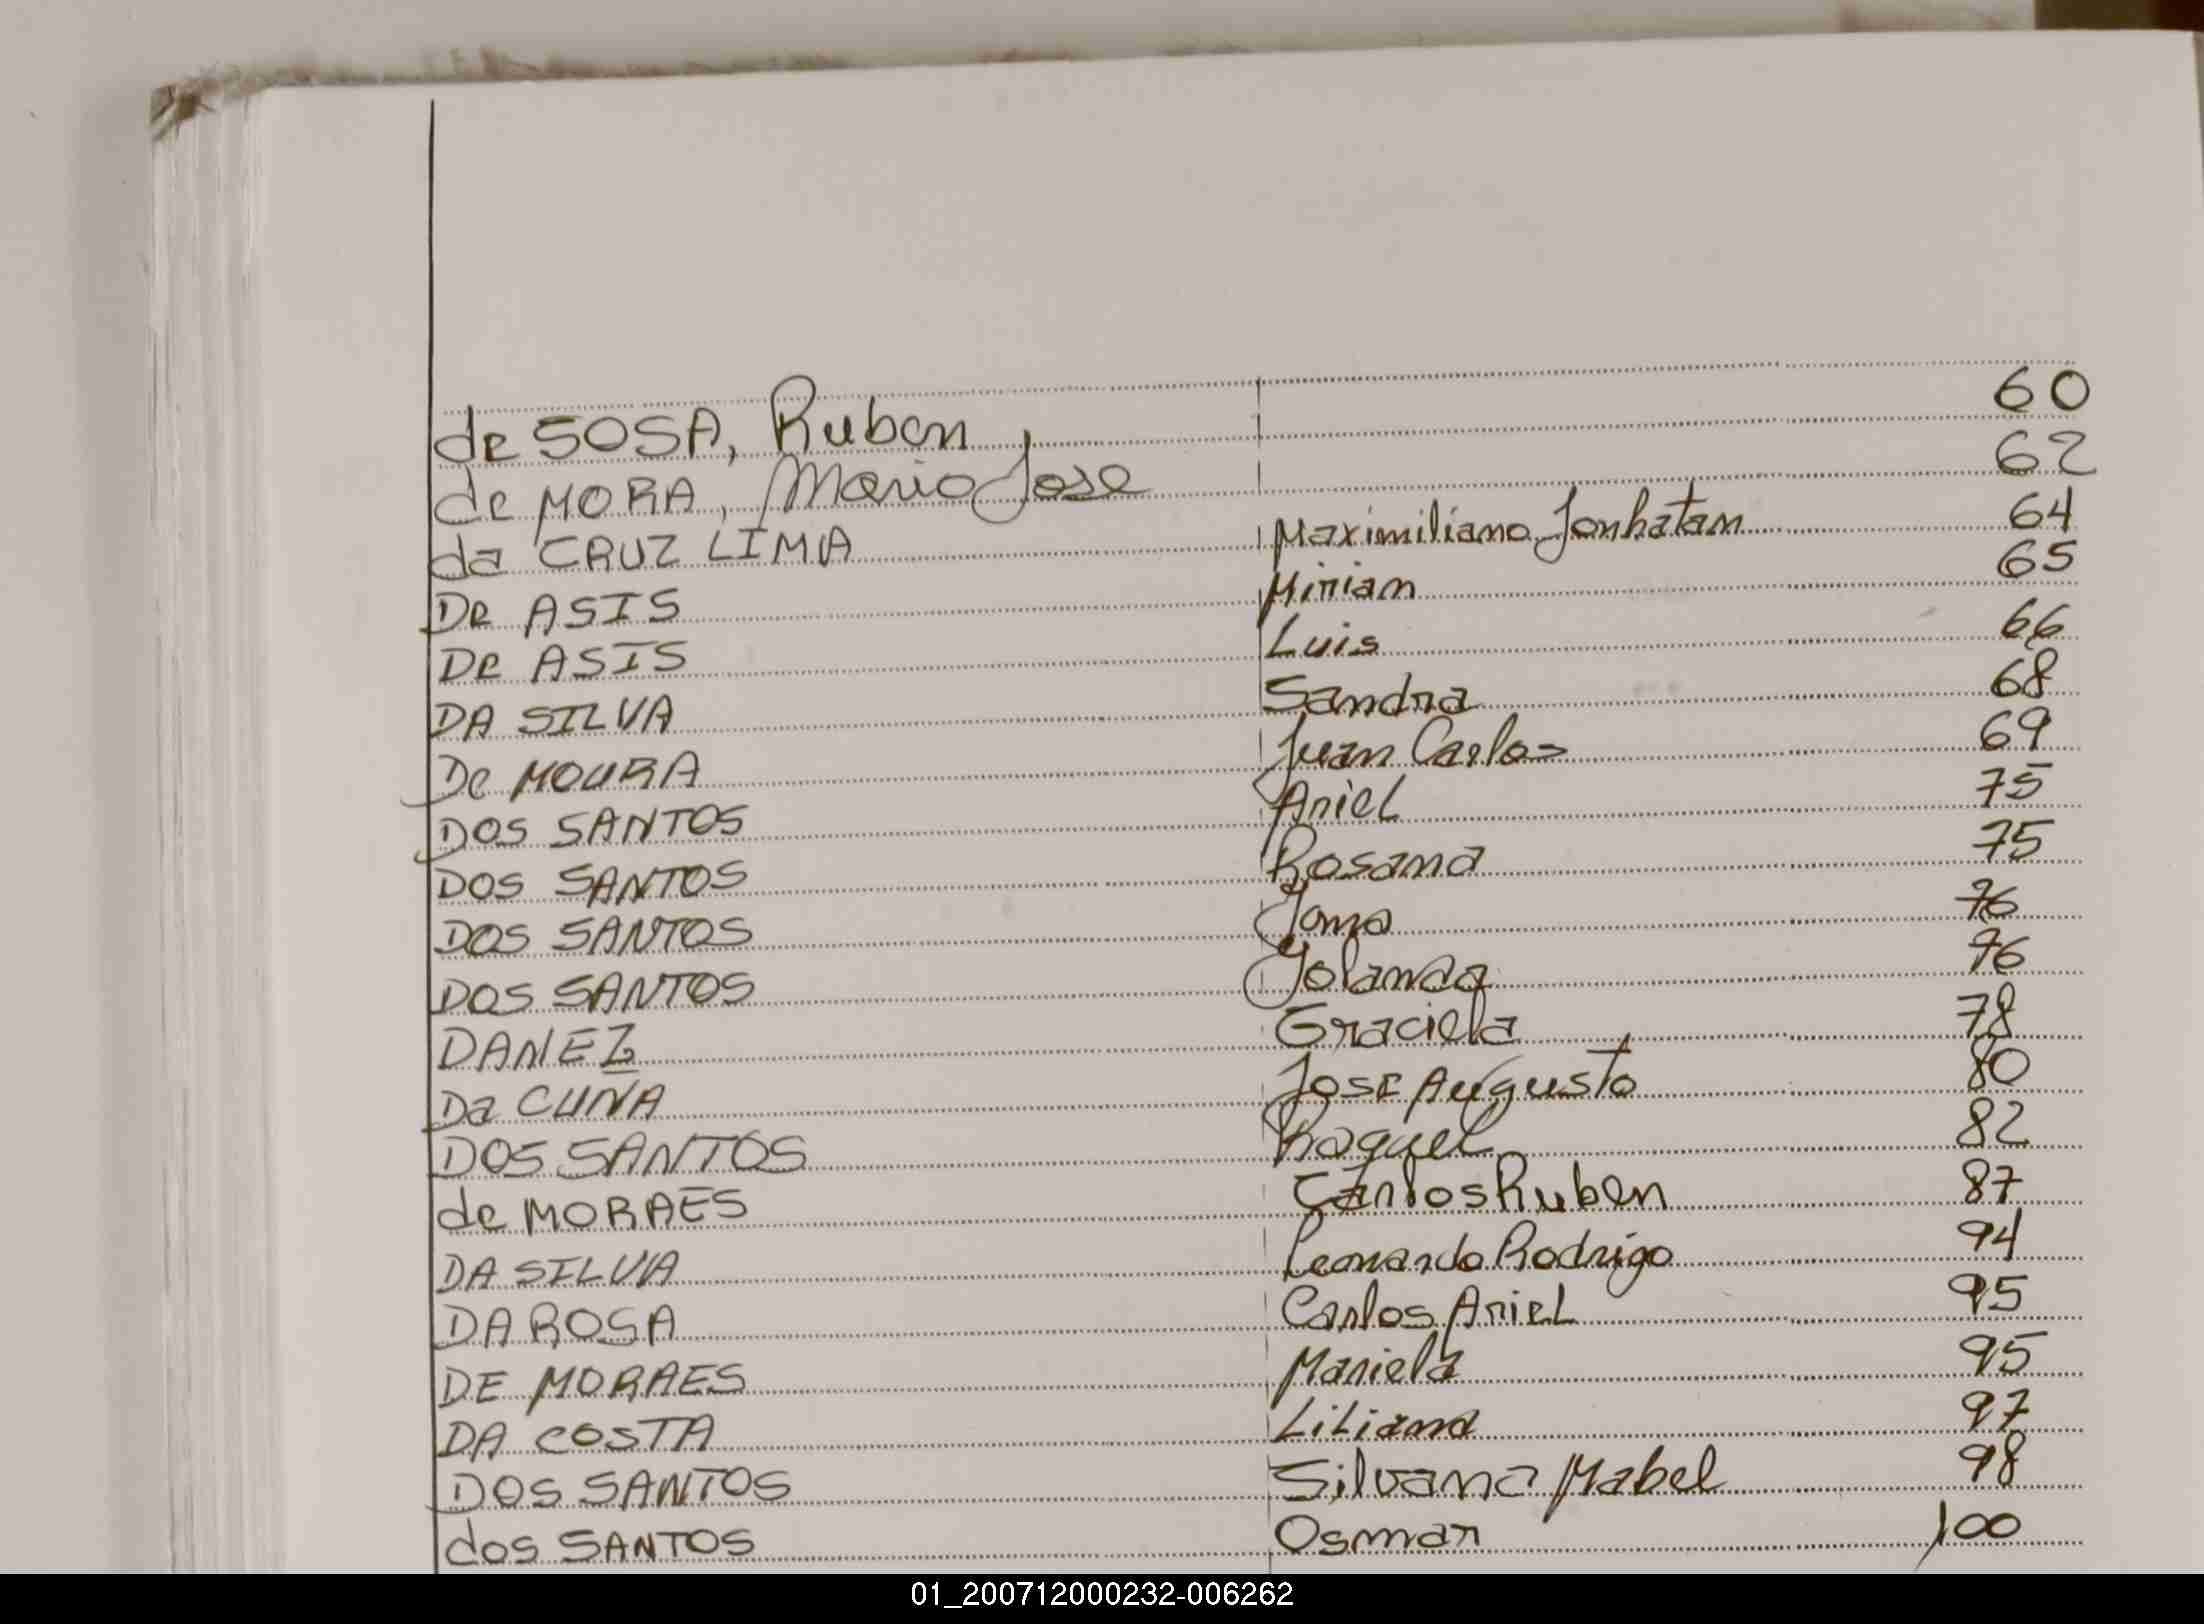 de SOSA, Ruben 60
de MORA, Mario Jose 62
da CRUZ LIMA Maximiliano Jonhatan 64
De ASIS Mirian 65
De ASIS Luis 66
DA SILVA Sandra 68
De MOURA Juan Carlos 69
DOS SANTOS Ariel 75
DOS SANTOS Rosana 75
DOS SANTOS 76
DOS SANTOS Yolanda 76
DANEZ Graciela 78
Da CUÑA Jose Augusto 80
DOS SANTOS Raquel 82
de MORAES Carlos Ruben 87
DA SILVA Leonardo Rodrigo 94
DA ROSA Carlos Ariel 95
DE MORAES Mariela 95
DA COSTA Liliana 97
DOS SANTOS Silvana Mabel 98
dos SANTOS Osmar 100
01_200712000232-006262